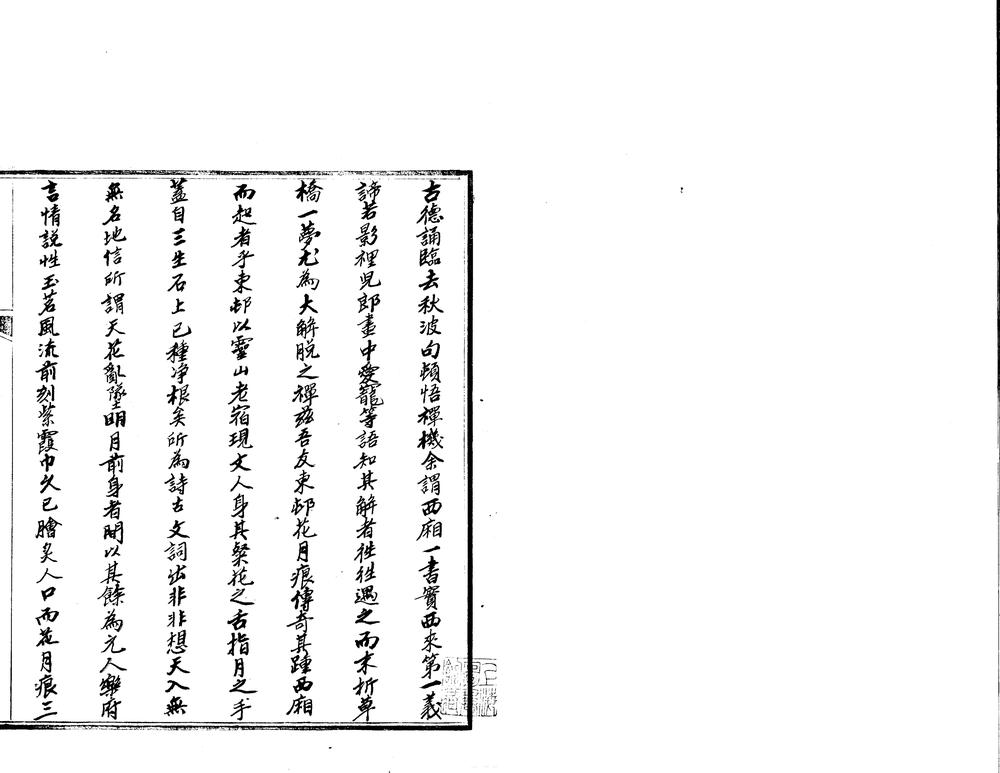 古德誦臨去秋波句頓悟禪機余謂西廂一書實西來第一義
諦若影裡児郎畫中愛寵等語知其解者徃徃遇之而末折草
橋一夢尤為大解脱之禪玆吾友東邨花月痕傳奇其踵西廂
而起者乎東邨以靈山老宿現文人身其粲花之舌指月之手
蓋自三生石上已種净根矣所為詩古文詞出非非想天入無
無名地信所謂天花亂墜明月前身者間以其餘為元人樂府
言情説性玉茗風流前刻紫霞巾久已膾炙人口而花月痕三